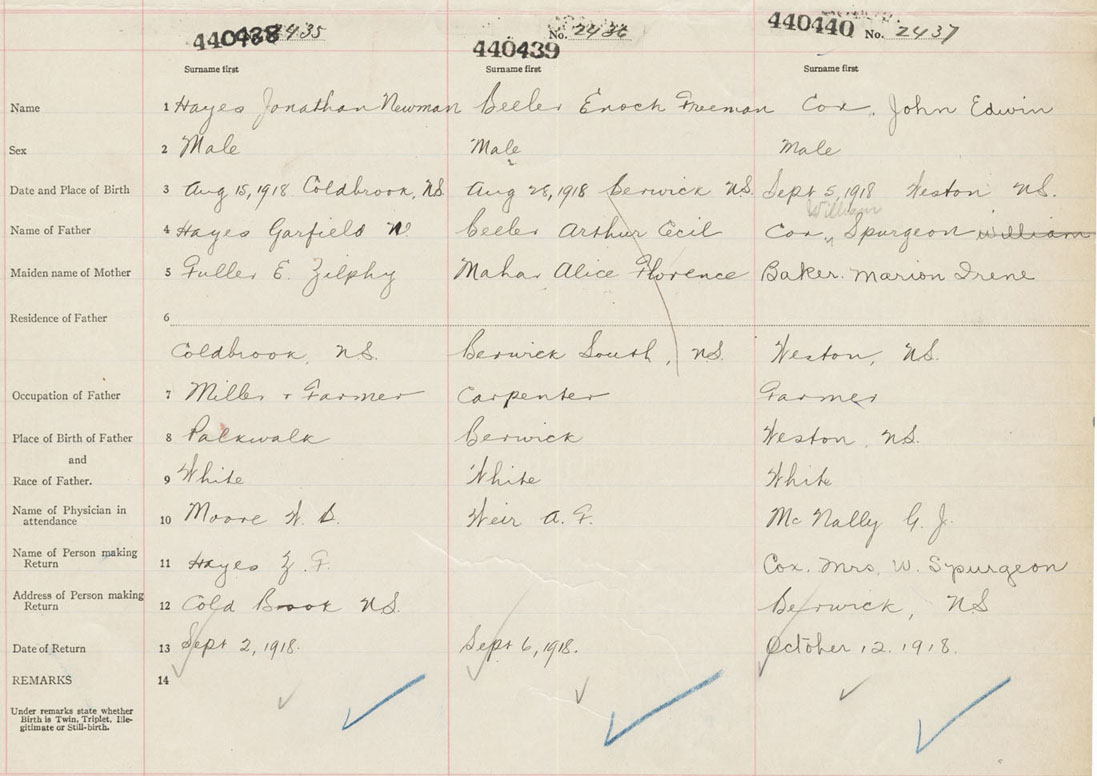 440438 2435 440439 No. 2436 440440 No. 2437
Surname first Surname first Surname first
Name 1 Hayes Jonathan Newman Beeler Enoch Freeman Cox, John Edwin
Sex 2 Male Male Male
Date and Place of Birth 3 Aug 15, 1918 Coldbrook, NS. Aug 28, 1918 Berwick NS. Sept 5, 1918 Weston NS.
William
Name of Father 4 Hayes Garfield N Beeler Arthur Cecil Cox, Spurgeon William
Maiden name of Mother 5 Fuller E. Zilphy Mahar Alice Florence Baker. Marion Irene
Residence of Father 6
Coldbrook, NS. Berwick South, NS. Weston, NS.
Occupation of Father 7 Miller & Farmer Carpenter Farmer
Place of Birth of Father 8 Palkwalk Berwick Weston, NS.
and
Race of Father. 9 White White White
Name of Physician in attendance 10 Moore W. B. Weir A. F. McNally G. J.
Name of Person making Return 11 Hayes Z. F. Cox. Mrs. W. Spurgeon
Address of Person making Return 12 Cold Brook NS. Berwick, NS
Date of Return 13 Sept 2, 1918. Sept 6, 1918. October 12. 1918.
REMARKS 14
Under remarks state whether
Birth is Twin, Triplet, Ille-
gitimate or Still-birth.